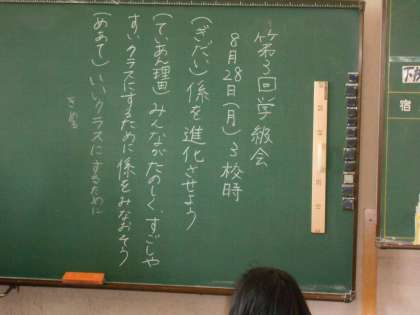 第3回学級会
8月28日(月)3校時
(ぎだい)係を進化させよう
(ていあん理由)みんながたのしく、すごしや
すいクラスにするために係をみなおそう
(めあて)いいクラスにするために
きめる
下校
宿